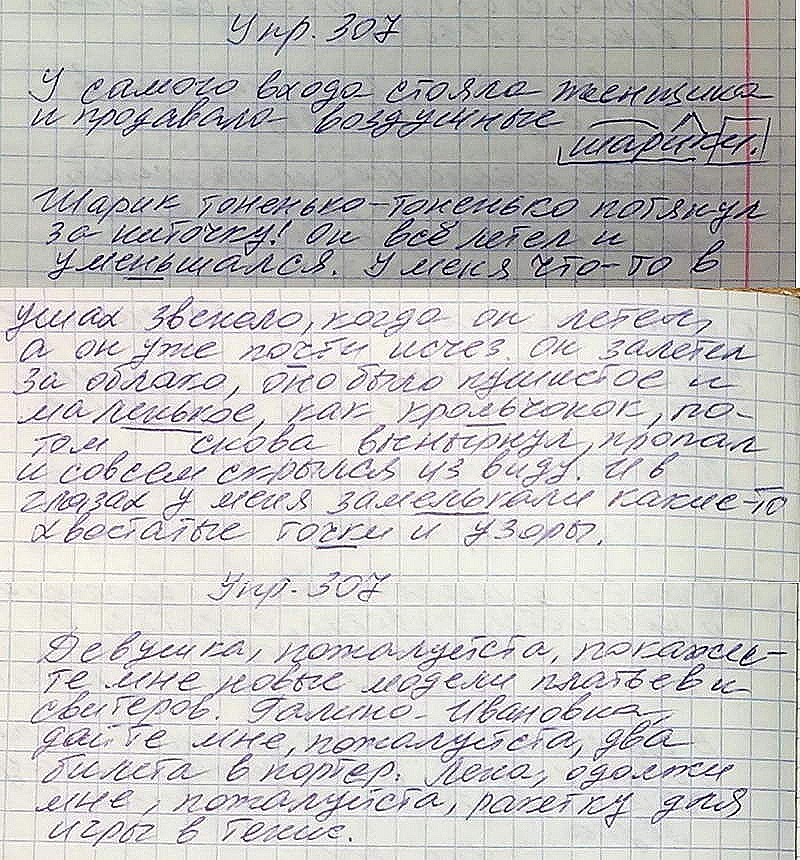 Упр. 307
У самого входа стояла женщика
и продавала воздушные
шарики.
Шарик тоненько-тоненько потянул
за ниточку! Он всё летел и
уменьшался. У меня что-то в
ушах звенело, когда он летел,
а он уже почти исчез. Он залетел
за облако, оно было пушистое и
маленькое, как крольчонок, по-
том снова вынырнул, пропал
и совсем скрылся из виду. И в
глазах у меня замелькали какие-то
хвостатые точки и узоры.
Упр. 307
Девушка, пожалуйста, покажи-
те мне новые модели платьев и
свитеров. Галина Ивановна,
дайте мне, пожалуйста, два
билета в портер. Лена, одолжи
мне, пожалуйста, ракетку для
игры в тенис.